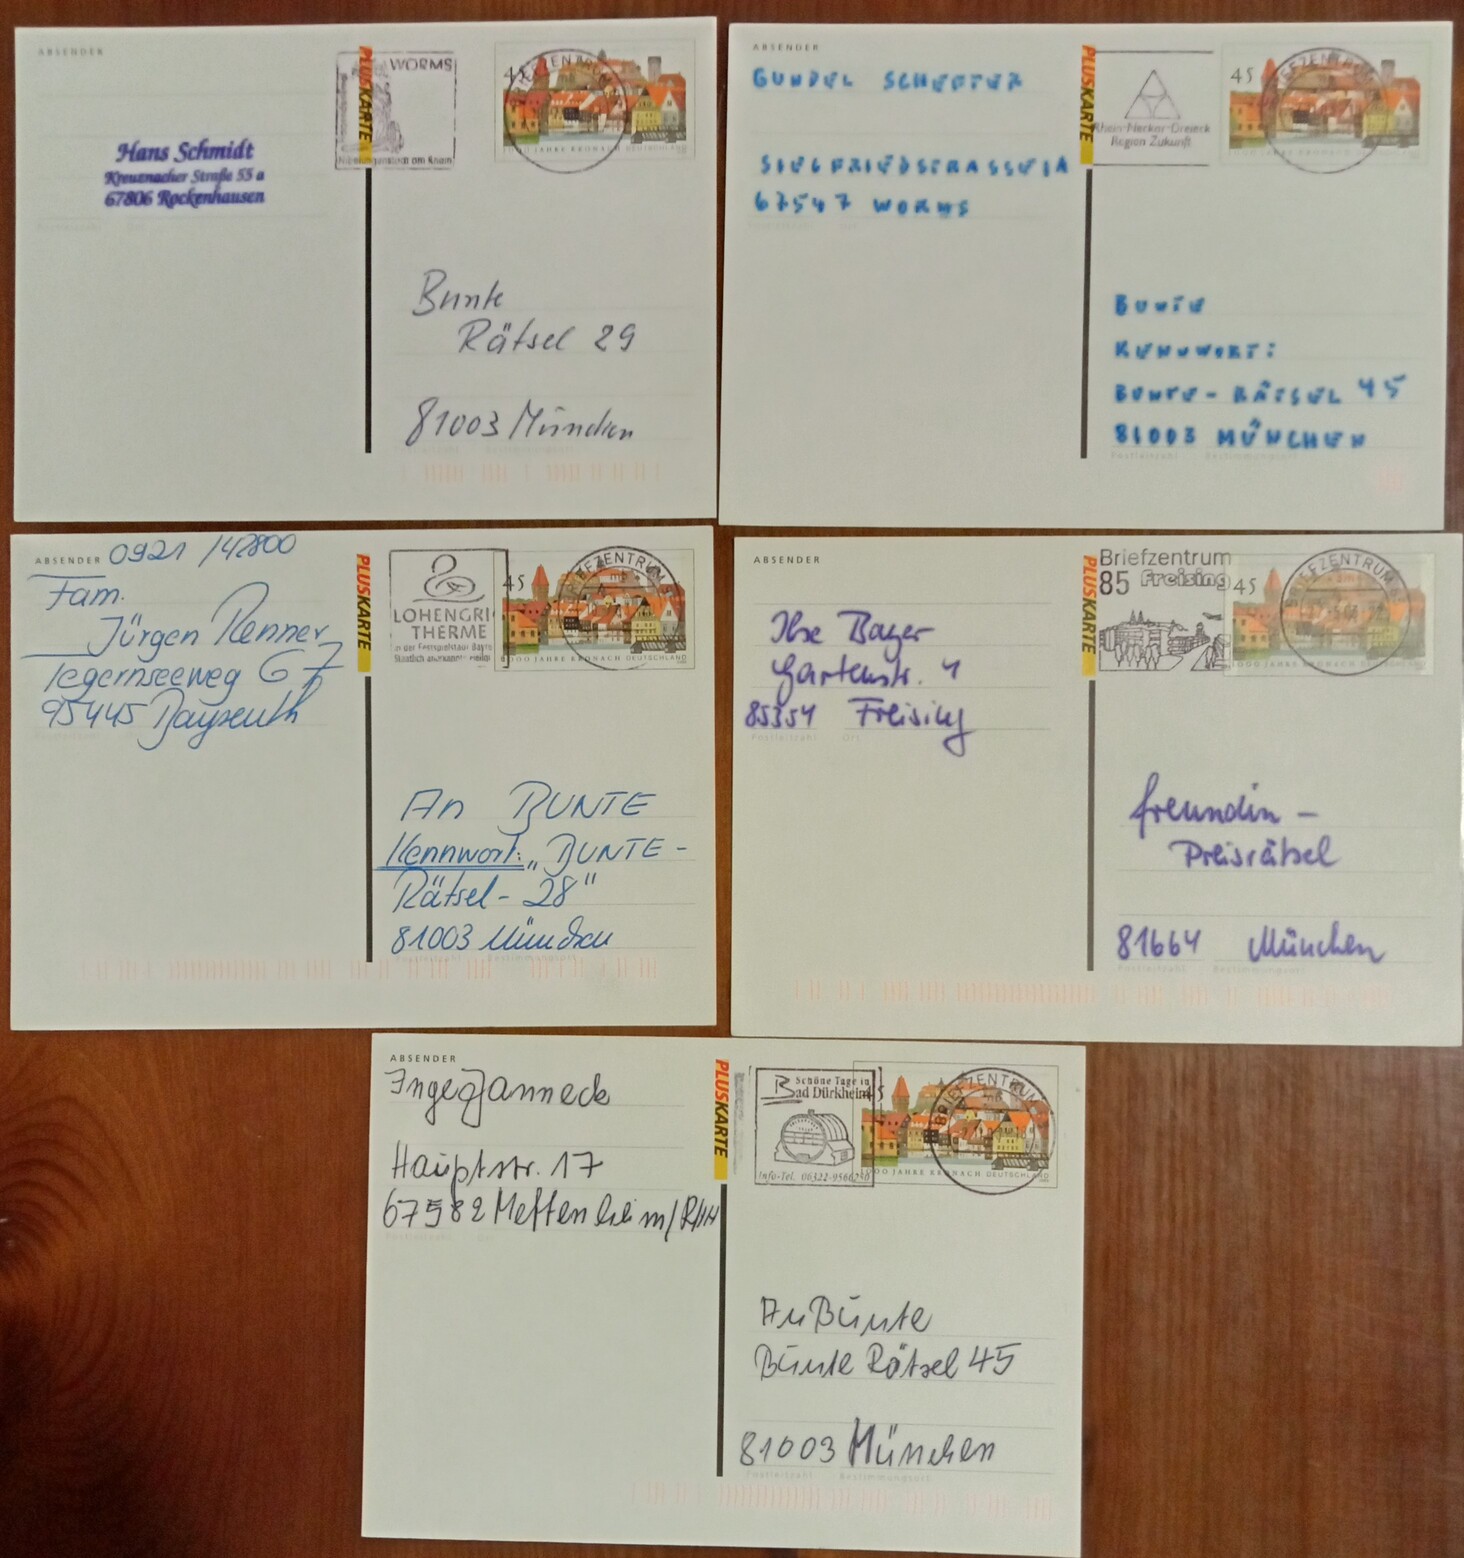 ABSENDER
PLUSKARTE
WORMS
Nibelungenstadt am Rhein
45
BRIEFZENTRUM
1000 JAHRE KRONACH DEUTSCHLAND
Hans Schmidt
Kreuznacher Straße 55 a
67806 Rockenhausen
Bunte
Rätsel 29
81003 München
ABSENDER
GUNDEL
SIEGFRIEDSTRASSE 1A
67547 WORMS
PLUSKARTE
Rhein-Neckar-Dreieck
Region Zukunft
45
BRIEFZENTRUM
BUNTE
KENNWORT:
BUNTE-RÄTSEL 45
81003 MÜNCHEN
Postleitzahl Bestimmungsort
ABSENDER 0921 /42800
Fam.
Jürgen Renner
Tegernseeweg 67
95445 Bayreuth
PLUSKARTE
LOHENGRI
THERME
in der Festspielstadt Bayre
45
BRIEFZENTRUM
1000 JAHRE KRONACH DEUTSCHLAND
An BUNTE
Kennwort: „BUNTE-
Rätsel-28"
81003 München
ABSENDER
Ilse Bayer
Gartenstr. 1
85354 Freising
Postleitzahl Ort
PLUSKARTE
Briefzentrum
85 Freising
45
BRIEFZENTRUM
1000 JAHRE KRONACH DEUTSCHLAND
freundin-
Preisrätsel
81664 München
Postleitzahl Bestimmungsort
ABSENDER
Inge Janneck
Hauptstr. 17
67582 Mettenheim/RHH
PLUSKARTE
Schöne Tage in
Bad Dürkheim
Info-Tel. 06322-9566250
45
BRIEFZENTRUM
1000 JAHRE KRONACH DEUTSCHLAND
An Bunte
Bunte Rätsel 45
81003 München
Postleitzahl Bestimmungsort